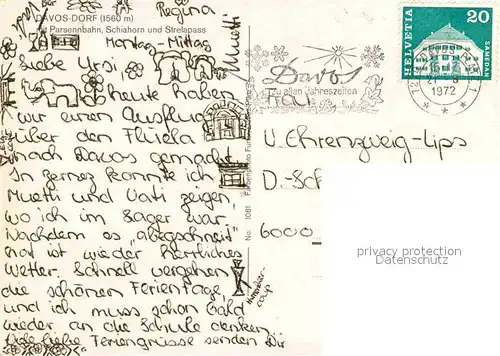 Regina
Muetti
DAVOS-DORF (1560 m)
Parsennbahn, Schiahorn und Strelapass
Montag-Mittag
Liebe Ursi,
heute haben
wir einen Ausflug
über den Flüela
nach Davos gemacht.
In Zernez konnte ich
Muetti und Vati zeigen,
wo ich im Lager war.
Nachdem es "abegschneit"
hat ist wieder herrliches
Wetter. Schnell vergehen
die schönen Ferientage
und ich muss schon bald
wieder an die Schule denken.
Viele liebe Feriengrüsse senden Dir
No. 1081
Davos
zu allen Jahreszeiten
DAVOS
1972
HELVETIA
20
SAMEDAN
Frau
U. Ehrenzweig-Lips
D.-Sch
6000
privacy protection
Datenschutz